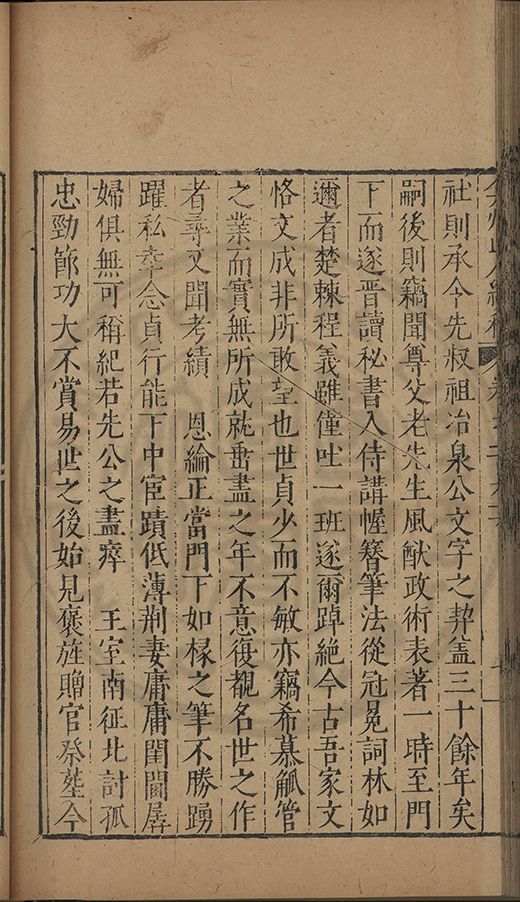 社則承令先叔祖冶泉公文字之契盖三十餘年矣
嗣後則竊聞尊父老先生風猷政術表著一時至門
下而遂晋讀秘書入侍講幄簪筆法從冠冕詞林如
邇者楚棘程義雖僅吐一班遂爾踔絶今古吾家文
恪文成非所敢望也世貞少而不敏亦竊希慕觚管
之業而實無所成就垂盡之年不意復覩名世之作
者尋又聞考績　恩綸正當門下如椽之筆不勝踴
躍私幸念貞行能下中宦蹟低薄荆妻庸庸閨閫孱
婦俱無可稱紀若先公之盡瘁　王室南征北討孤
忠勁節功大不賞易世之後始見褒旌贈官祭塟今